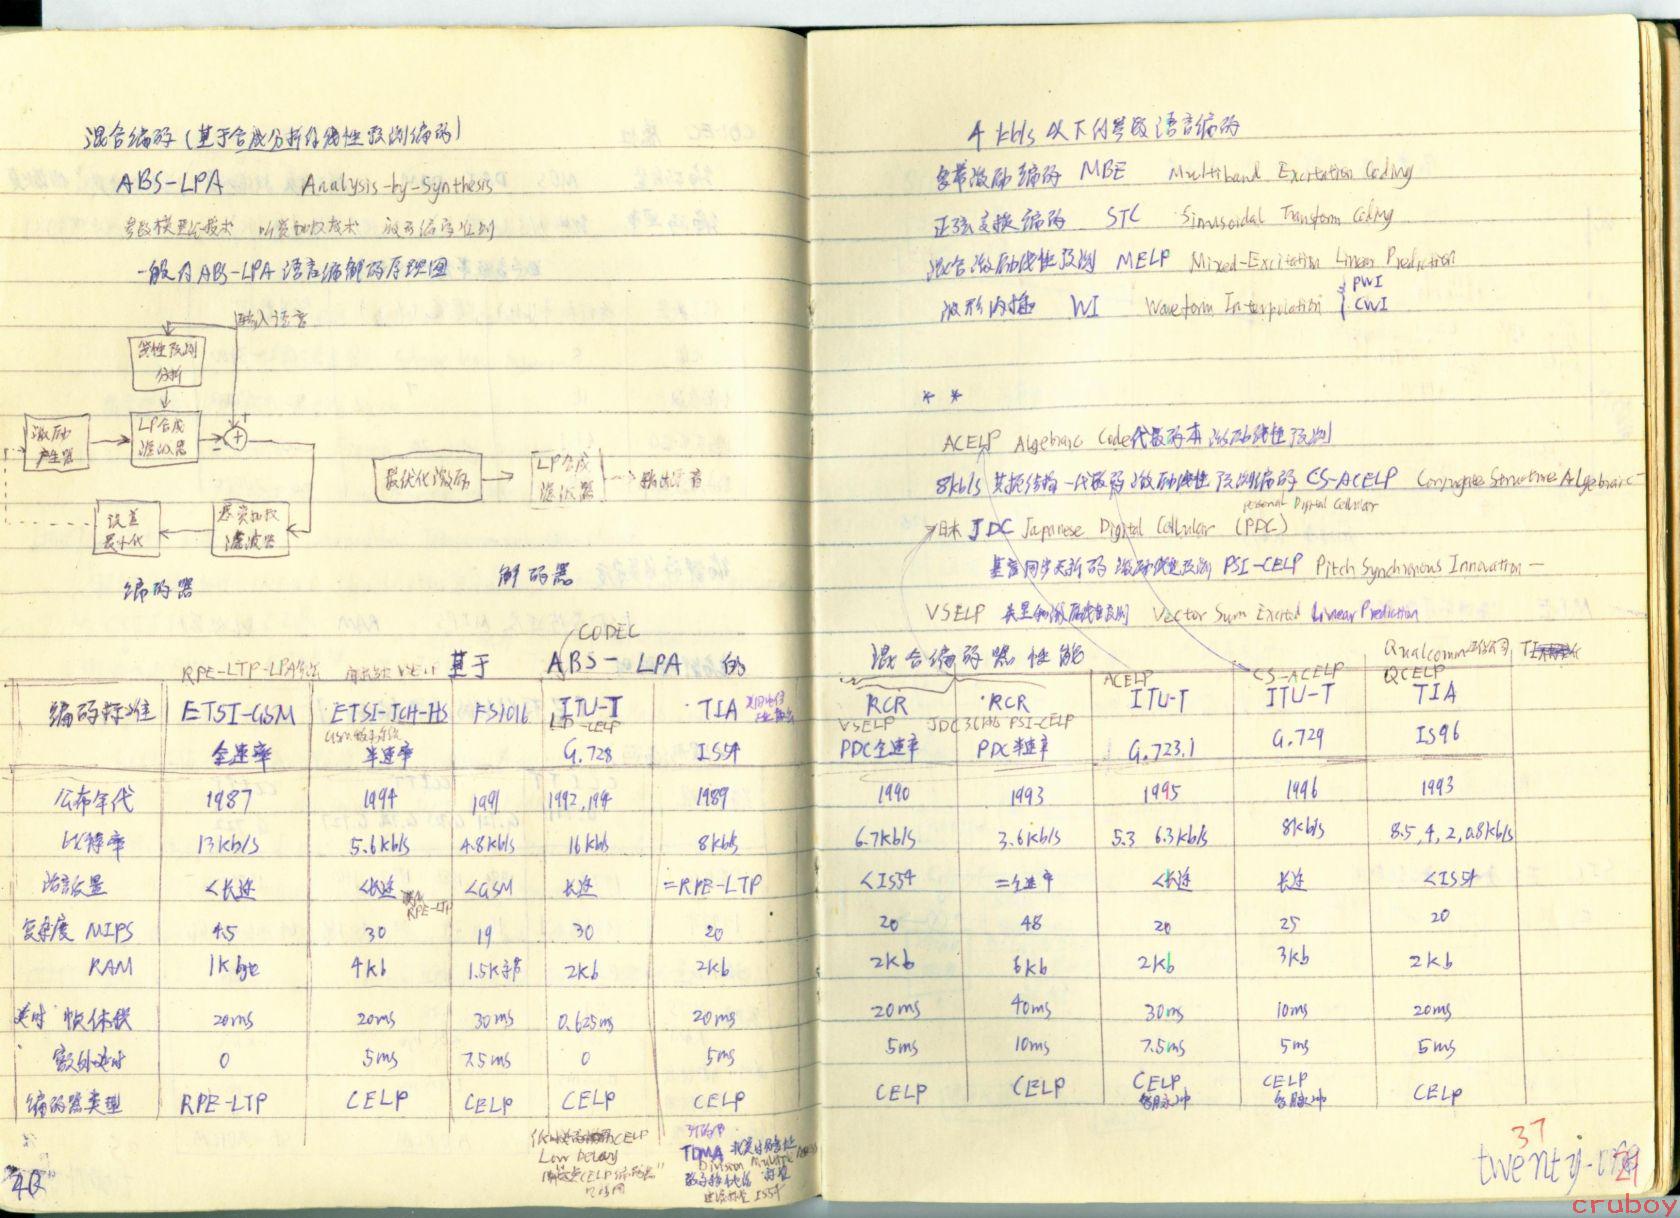 混合编码(基于合成分析的线性预测编码)
ABS-LPA Analysis-by-Synthesis
参数模型化技术 听觉加权技术
一般的ABS-LPA语言编解码原理图
输入语言
线性预测
分析
激励
产生器
LP合成
滤波器
+
-
误差
最小化
感觉加权
滤波器
编码器
最优化激励
LP合成
滤波器
输出语音
解码器
CODEC
RPE-LTP-LPA
基于 ABS-LPA 的
编码标准 ETSI-GSM ETSI-TCH-HS FS1016 ITU-T TIA
LD-CELP
全速率 半速率 G.728 IS54
公布年代 1987 1994 1991 1992,194 1989
比特率 13kb/s 5.6kb/s 4.8kb/s 16kb/s 8kb/s
语言质量 <长途 <长途 <GSM 长途 =RPE-LTP
RPE-LTP
复杂度 MIPS 4.5 30 19 30 20
RAM 1Kbyte 4Kb 1.5K字节 2Kb 2Kb
延时 帧体积 20ms 20ms 30ms 0.625ms 20ms
额外延时 0 5ms 7.5ms 0 5ms
编码器类型 RPE-LTP CELP CELP CELP CELP
CELP
Low Delay
TDMA
Division Multiple Access
IS54
4kb/s以下的参数语言编码
多带激励编码 MBE Multiband Excitation Coding
正弦变换编码 STC Sinusoidal Transform Coding
混合激励线性预测 MELP Mixed-Excitation Linear Prediction
波形内插 WI Waveform Interpolation
PWI
CWI
* *
ACELP Algebraic Code代数码本激励线性预测
8kb/s 共轭结构-代数码激励线性预测编码 CS-ACELP Conjugate Structure Algebraic-
Personal Digital Cellular
日本 JDC Japanese Digital Cellular (PDC)
基音同步更新码激励线性预测 PSI-CELP Pitch Synchronous Innovation-
VSELP 矢量和激励线性预测 Vector Sum Excited Linear Prediction
混合编码器性能
Qualcomm
ACELP CS-ACELP QCELP
RCR RCR ITU-T ITU-T TIA
VSELP JDC 3.6kb/s PSI-CELP
PDC全速率 PDC半速率 G.723.1 G.729 IS96
1990 1993 1995 1996 1993
6.7kb/s 3.6kb/s 5.3 6.3kb/s 8kb/s 8.5,4,2,0.8kb/s
<IS54 =全速率 <长途 长途 <IS54
20 48 20 25 20
2Kb 6Kb 2Kb 3Kb 2Kb
20ms 40ms 30ms 10ms 20ms
5ms 10ms 7.5ms 5ms 5ms
CELP CELP CELP CELP CELP
多脉冲 多脉冲
37
21
cruboy